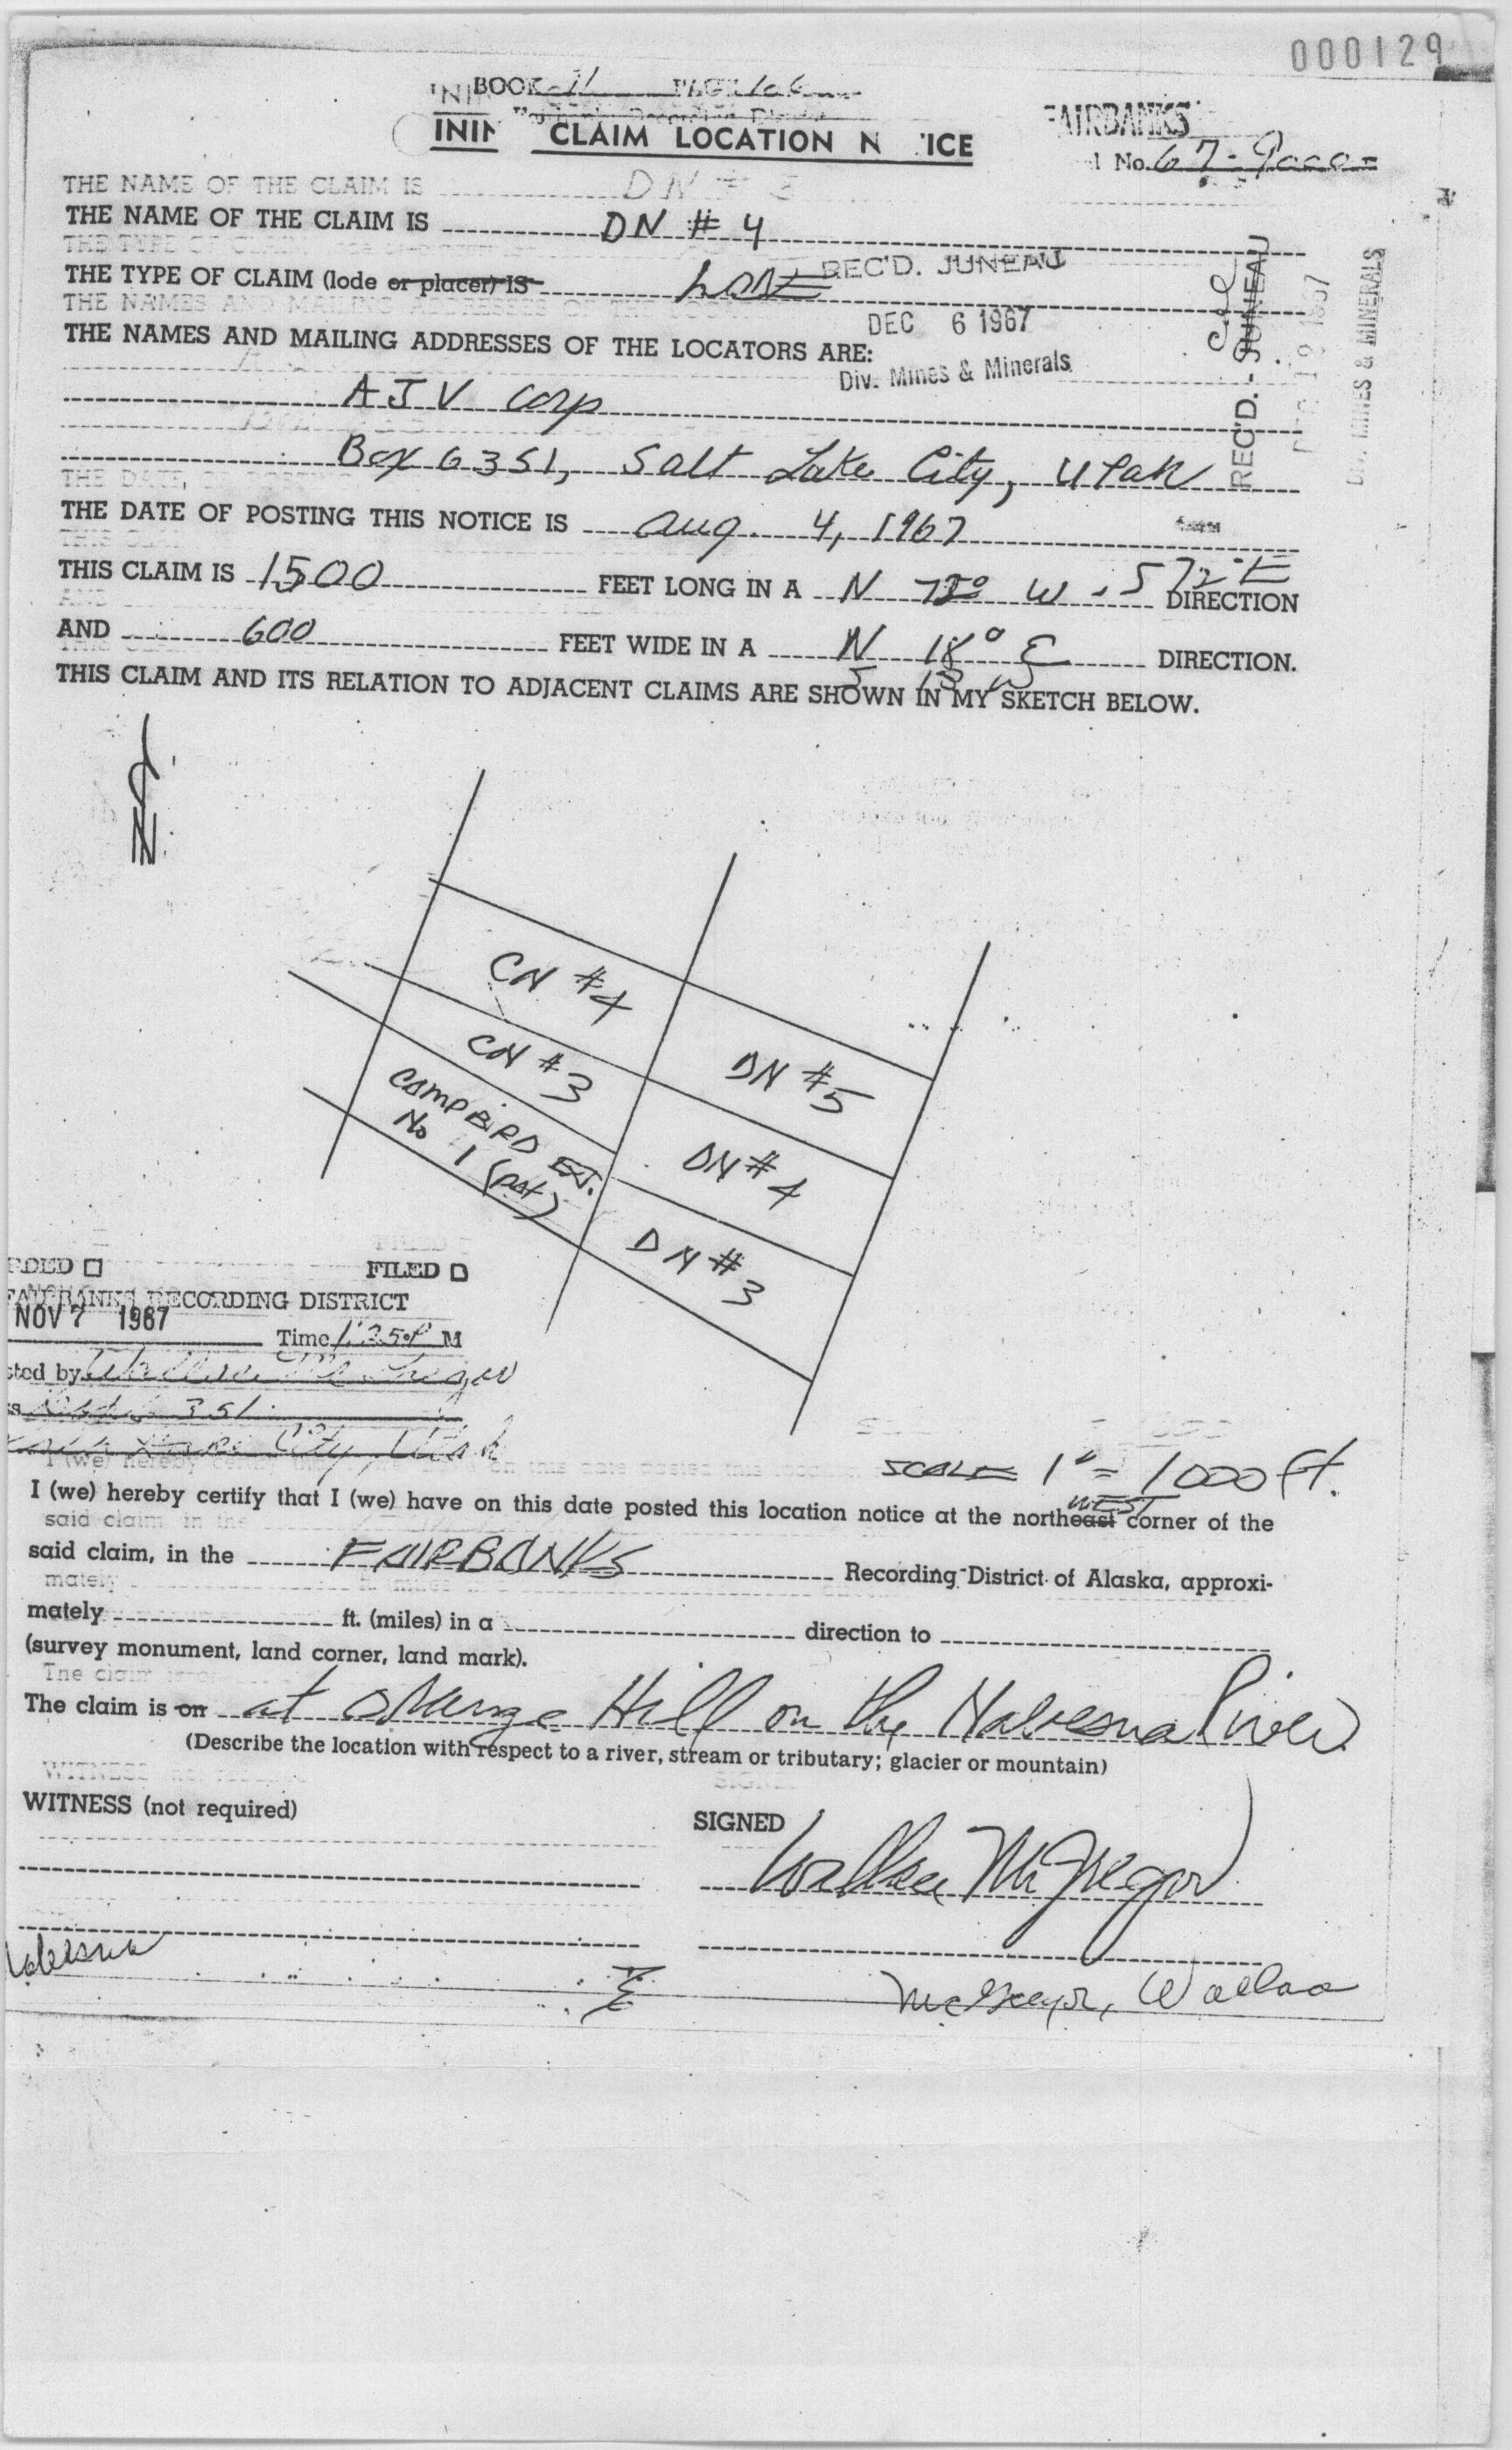 000129
BOOK 11 PAGE
CLAIM LOCATION N ICE
FAIRBANKS
No. 67-9000
THE NAME OF THE CLAIM IS DN # 3
THE NAME OF THE CLAIM IS DN # 4
THE TYPE OF CLAIM (lode or placer) IS LODE
REC'D. JUNEAU
DEC 6 1967
Div. Mines & Minerals
REC'D. - JUNEAU
MINES & MINERALS
THE NAMES AND MAILING ADDRESSES OF THE LOCATORS ARE:
AJV Corp
Box 6351, Salt Lake City, Utah
THE DATE OF POSTING THIS NOTICE IS Aug. 4, 1967
THIS CLAIM IS 1500 FEET LONG IN A N 72° W - S 72° E DIRECTION
AND 600 FEET WIDE IN A N 18° E DIRECTION.
S 18 W
THIS CLAIM AND ITS RELATION TO ADJACENT CLAIMS ARE SHOWN IN MY SKETCH BELOW.
N.
CN #4
CN #3
DN #5
CAMP BIRD EXT.
No 1 (pat)
DN #4
DN #3
DED ☐ FILED ☐
FAIRBANKS RECORDING DISTRICT
NOV 7 1967
Time 1:25 P M
sted by Wallace McGregor
351
City, Utah
SCALE 1" = 1000 ft.
I (we) hereby certify that I (we) have on this date posted this location notice at the northeast WEST corner of the
said claim, in the FAIRBANKS Recording District of Alaska, approxi-
mately ft. (miles) in a direction to
(survey monument, land corner, land mark).
The claim is on at Orange Hill on the Nabesna River
(Describe the location with respect to a river, stream or tributary; glacier or mountain)
WITNESS (not required)
SIGNED
Wallace McGregor
Nabesna
McGregor, Wallace